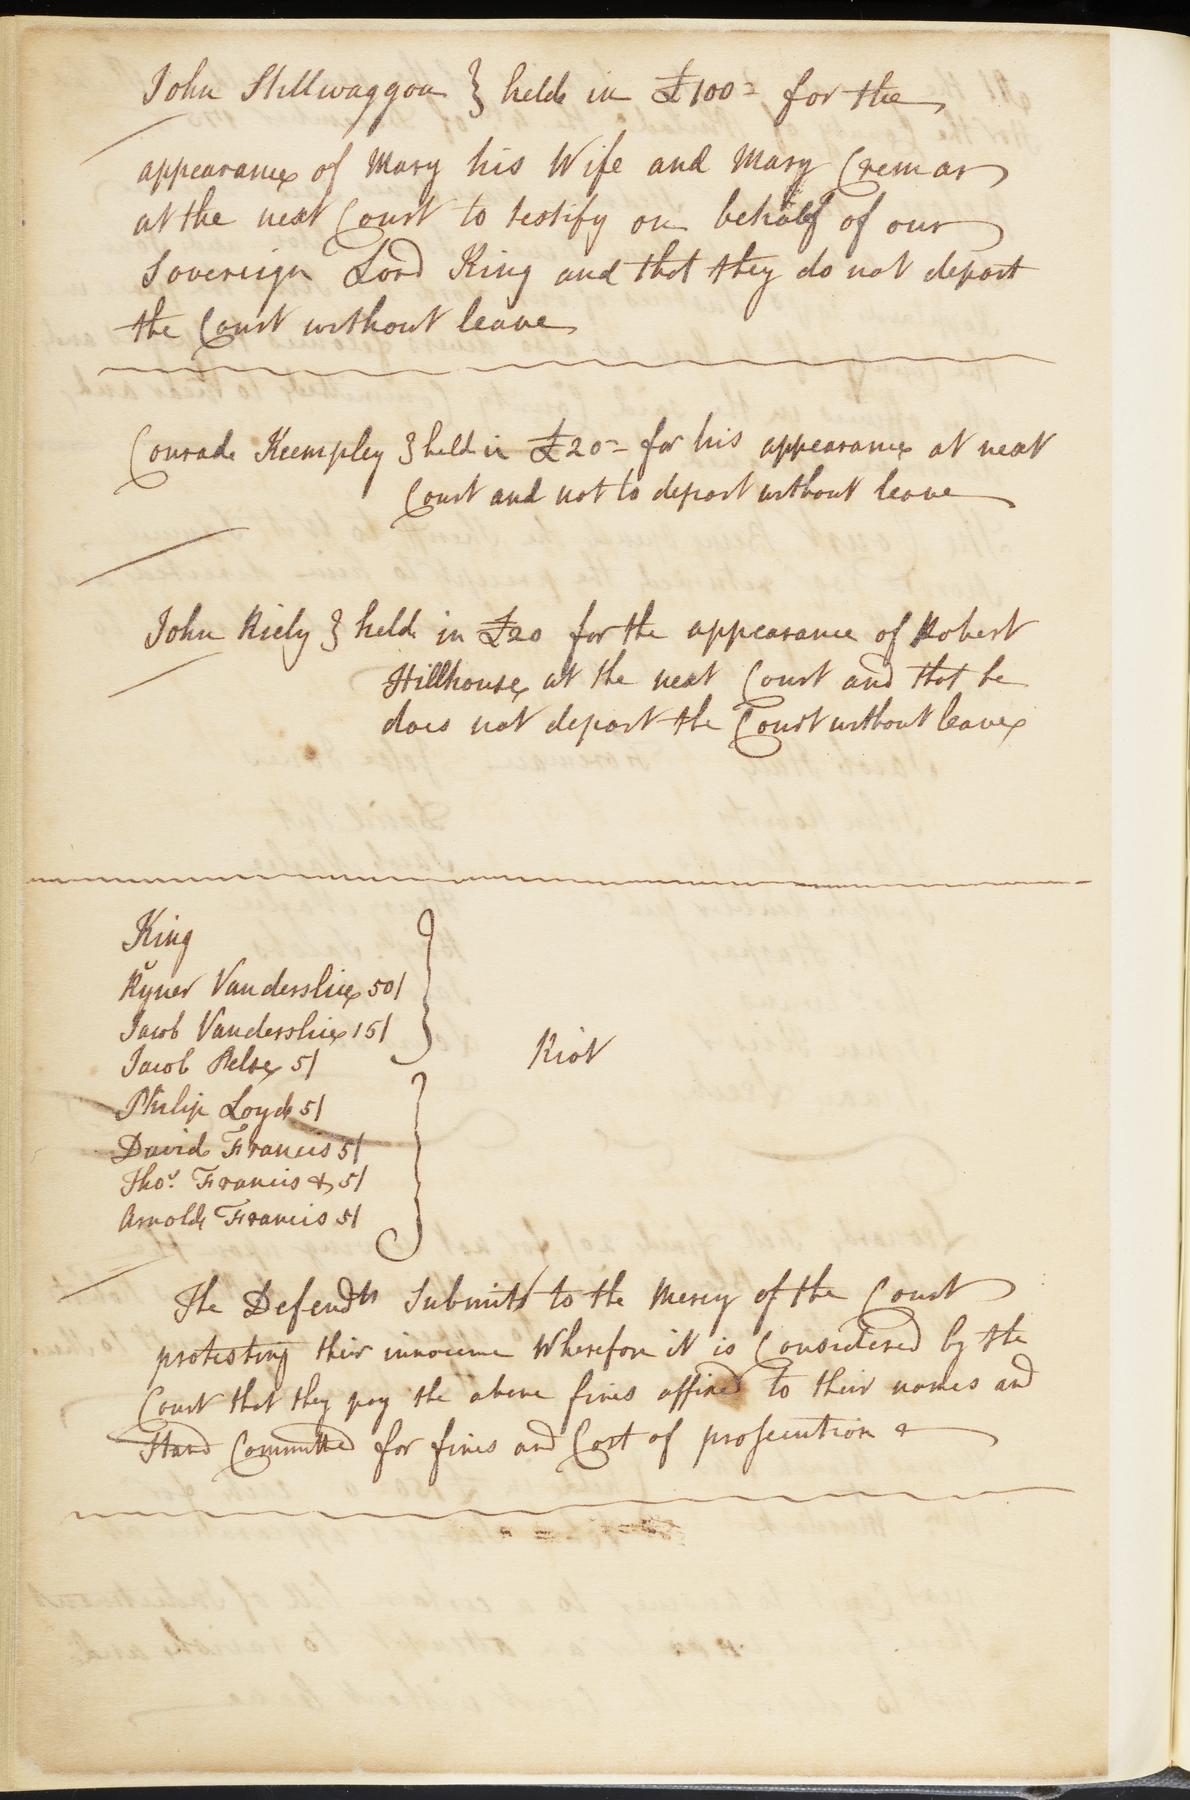 John Stillwaggon } held in £100= for the
appearance of Mary his Wife and Mary Cremar
at the next Court to testify on behalf of our
Sovereign Lord King and that they do not depart
the Court without leave
Conrade Keempley } held in £20= for his appearance at next
Court and not to depart without leave
John Riely } held in £20 for the appearance of Robert
Hillhouse at the next Court and that he
does not depart the Court without leave
King
v
Ryner Vanderslice 50/
Jacob Vanderslice 15/
Jacob Pelse 5/
Riot
Philip Loyd 5/
David Francis 5/
Thos. Francis & 5/
Arnold Francis 5/
The Defendts Submitt to the Mercy of the Court
protesting their innocence Wherefore it is Considered by the
Court that they pay the above fines affixed to their names and
Stand Committed for fines and Cost of prosecution &